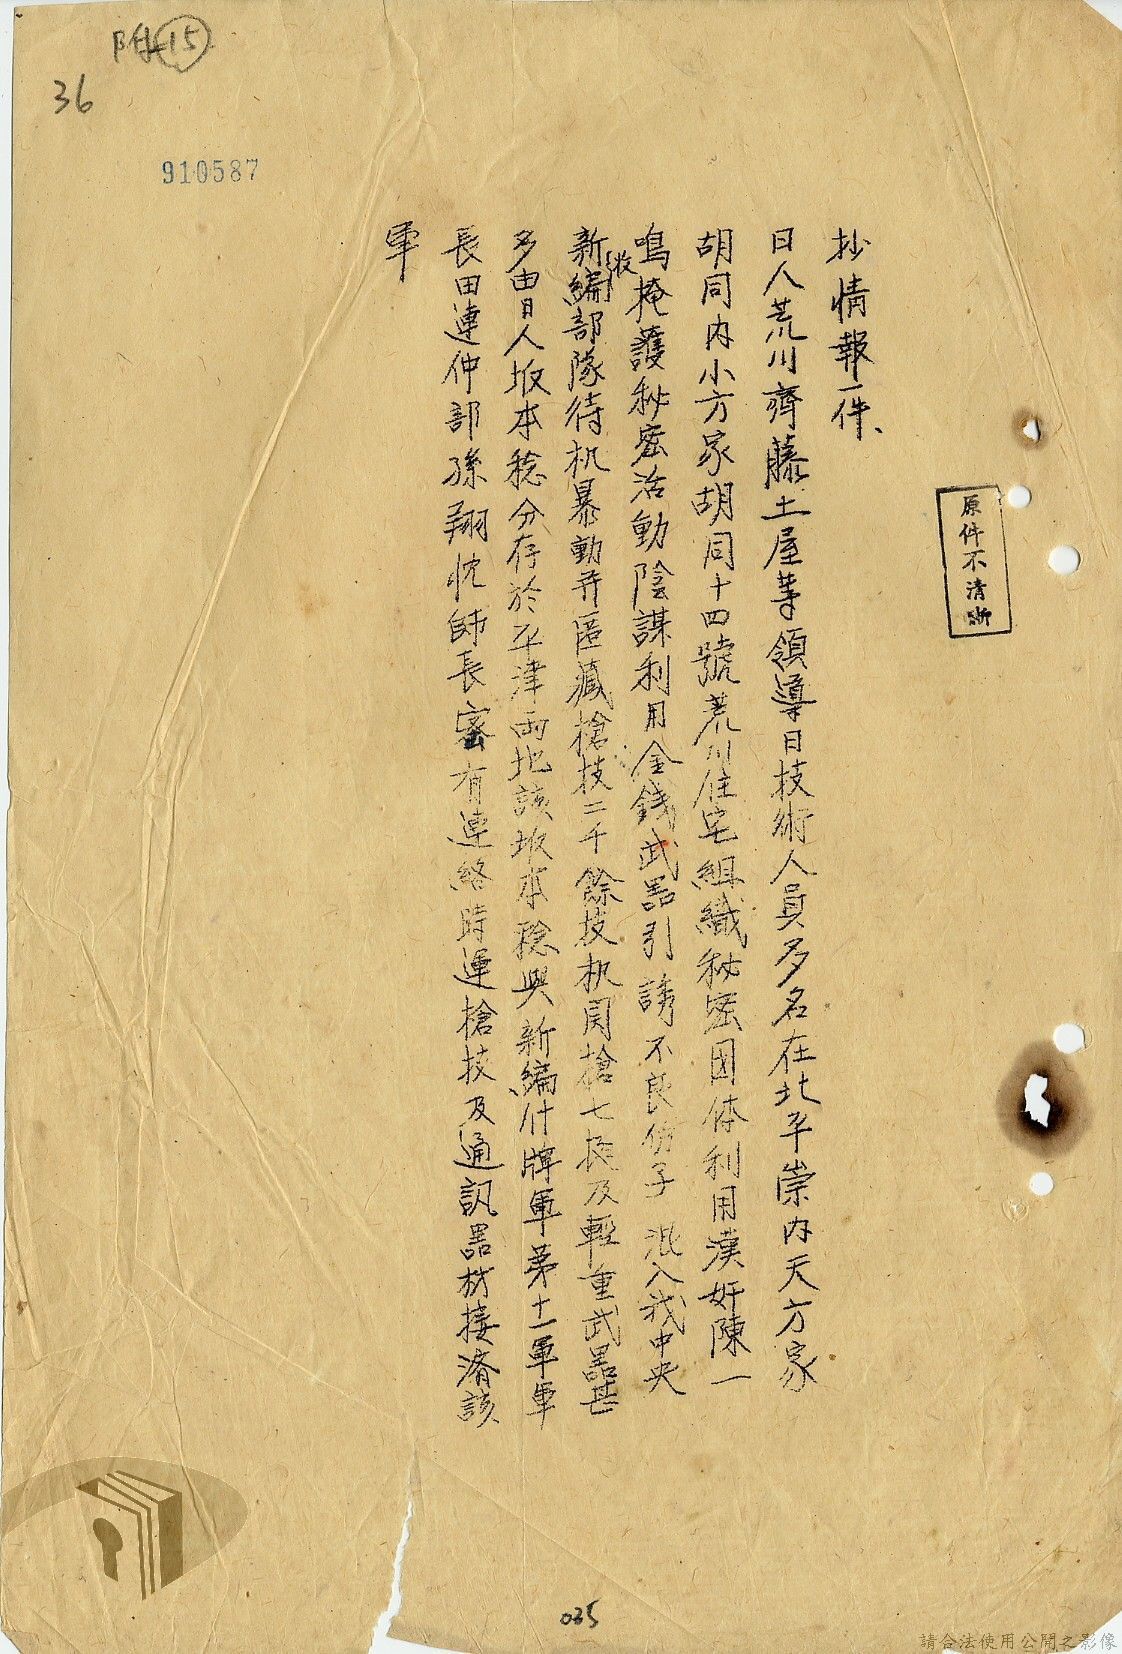 附15
36
910587
原件不清晰
抄情報一件、
日人荒川齊藤土屋等領導日技術人員多名在北平崇內天方家
胡同內小方家胡同十四號荒川住宅組織秘密团体利用漢奸陳一
鳴掩護秘密活動陰謀利用金錢武器引誘不良份子混入我中央
收
新編部隊待机暴動并匿藏槍技二千餘技机関槍七挺及輕重武器甚
多由日人坂本稔分存於平津兩地該坂本稔與新編什牌軍第十一軍軍
長田連仲部孫翔忱師長密有連絡時運槍技及通訊器材接濟該
軍
035
請合法使用公開之影像